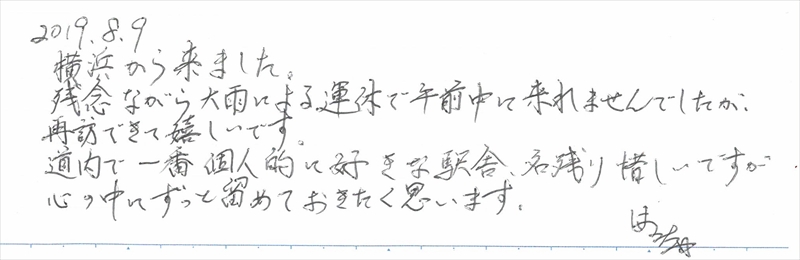 2019.8.9
横浜から来ました。
残念ながら大雨による運休で午前中に来れませんでしたが、
再訪できて嬉しいです。
道内で一番個人的に好きな駅舎、名残り惜しいですが
心の中にずっと留めておきたく思います。